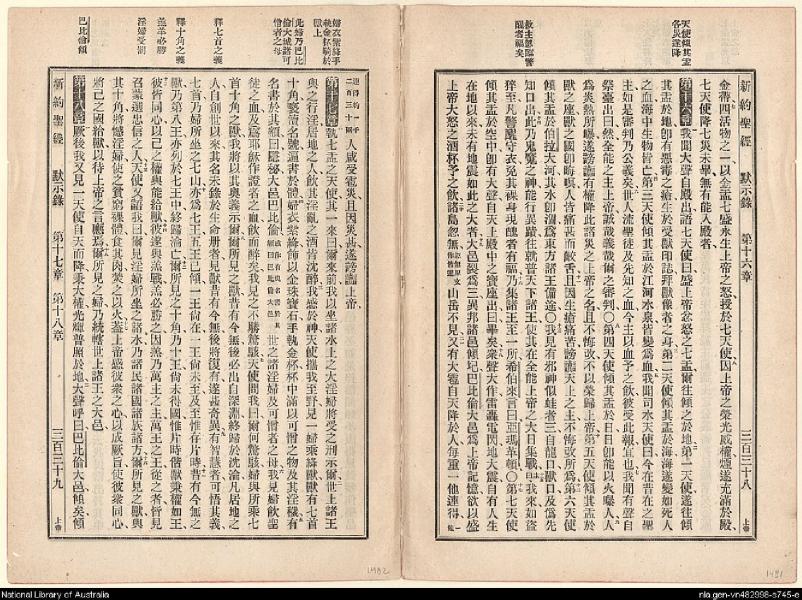 新約聖經 默示錄 第十六章 三百三十八 上帝
天使傾其盂各災遂降
救主思臨警醒者福矣
七天使降七災未畢無有能入殿者
第十六章 我聞大聲自殿出語七天使曰盛上帝忿怒之七盂爾往傾之於地第一天使遂往傾
其盂於地卽有惡毒之瘡生於受獸印誌拜獸像者之身第二天使傾其盂於海海遂變如死人
之血海中生物皆亡第三天使傾其盂於江河水泉皆變爲血我聞司水天使曰今在昔在之聖
主如是審判乃公義矣世人流聖徒及先知之血今主以血予之飲彼受此報宜也我聞有聲自
祭臺出曰然全能之主上帝誠哉義哉爾之審判〇第四天使傾其盂於日日卽能以火曝人人
爲炎熱所曝遂謗讟有權降此諸災之上帝之名且不悔改不以榮歸上帝第五天使傾其盂於
獸之座獸之國卽晦暝人皆痛甚而齩舌且因生瘡痛苦謗讟天上之主不悔改所爲第六天使
傾其盂於伯拉大河其水卽涸爲東方諸王備途〇我見有邪神似蛙者三自龍口獸口及僞先
知口出此乃鬼魔之神能行異蹟往就普天下諸王使其在全能上帝之大日集戰我來如盜
猝至警醒守衣免其裸身現醜者有福乃集諸王至一所希伯來言曰亞瑪革頓〇第七天使
傾其盂於空中卽有大聲自天上殿中之寶座出曰畢矣衆聲大作雷轟電閃地大震自有人生
在地以來未有地震如此之大者大邑裂爲三異邦諸邑傾圮巴比倫大邑爲上帝記憶欲以盛
上帝大怒之酒杯予之飲諸島忽無山岳不見又有大雹自天降於人每重一他連得
新約聖經 默示錄 第十七章 第十八章 三百三十九 上帝
婦衣紫絳手執金杯騎於獸上
此婦乃巴比倫大城諸可憎者之母
釋七首之義
釋十角之義
羔羊必勝
淫婦受刑
巴比倫傾
人感受雹災且因災甚遂謗讟上帝
第十七章 執七盂之天使其一來曰爾來前我以坐諸水上之大淫婦將受之刑示爾世上諸王
與之行淫居地之人飲其淫亂之酒皆沈醉我感於神天使攜我至野見一婦乘絳獸獸有七首
十角褻瀆名號徧書於體婦衣紫絳飾以金珠寶石手執金杯杯中滿以可憎之物及其淫穢有
名書於其額曰隱秘大邑巴比倫世之諸淫婦及可憎者之母我見婦飲聖
徒之血及爲耶穌作證者之血飲而醉矣我見之不勝驚駭天使問我曰爾何驚駭婦與所乘七
首十角之獸我將以其奧義示爾爾所見之獸昔有今無後必出自深淵終歸於沈淪凡居地之
人自創世以來其名未錄於生命冊者見獸昔有今無後將復有遂甚奇異有智慧者可悟其義
七首乃婦所坐之七山亦爲七王五王已傾一王尙在一王尙未至及至惟存片時昔有今無之
獸乃第八王亦列於七王中終歸淪亡爾所見之十角乃十王尙未得國惟片時偕獸秉權如王
彼皆同心以己之權與能給獸彼遂與羔戰羔必勝之因羔乃萬主之主萬王之王從之者皆見
召蒙選忠信之人天使又語我曰爾見淫婦所坐之諸水乃諸民諸國諸族諸方爾所見之獸與
其十角將憾淫婦使之貧窮裸體食其肉焚之以火蓋上帝感彼衆之心以成厥旨使彼衆同心
將己之國給獸以待上帝之言應焉爾所見之婦乃統轄世上諸王之大邑
第十八章 厥後我又見一天使自天而降秉大權光輝普照於地大聲呼曰巴比倫大邑傾矣傾
1482
1481
National Library of Australia
nla.gen-vn482998-s745-e